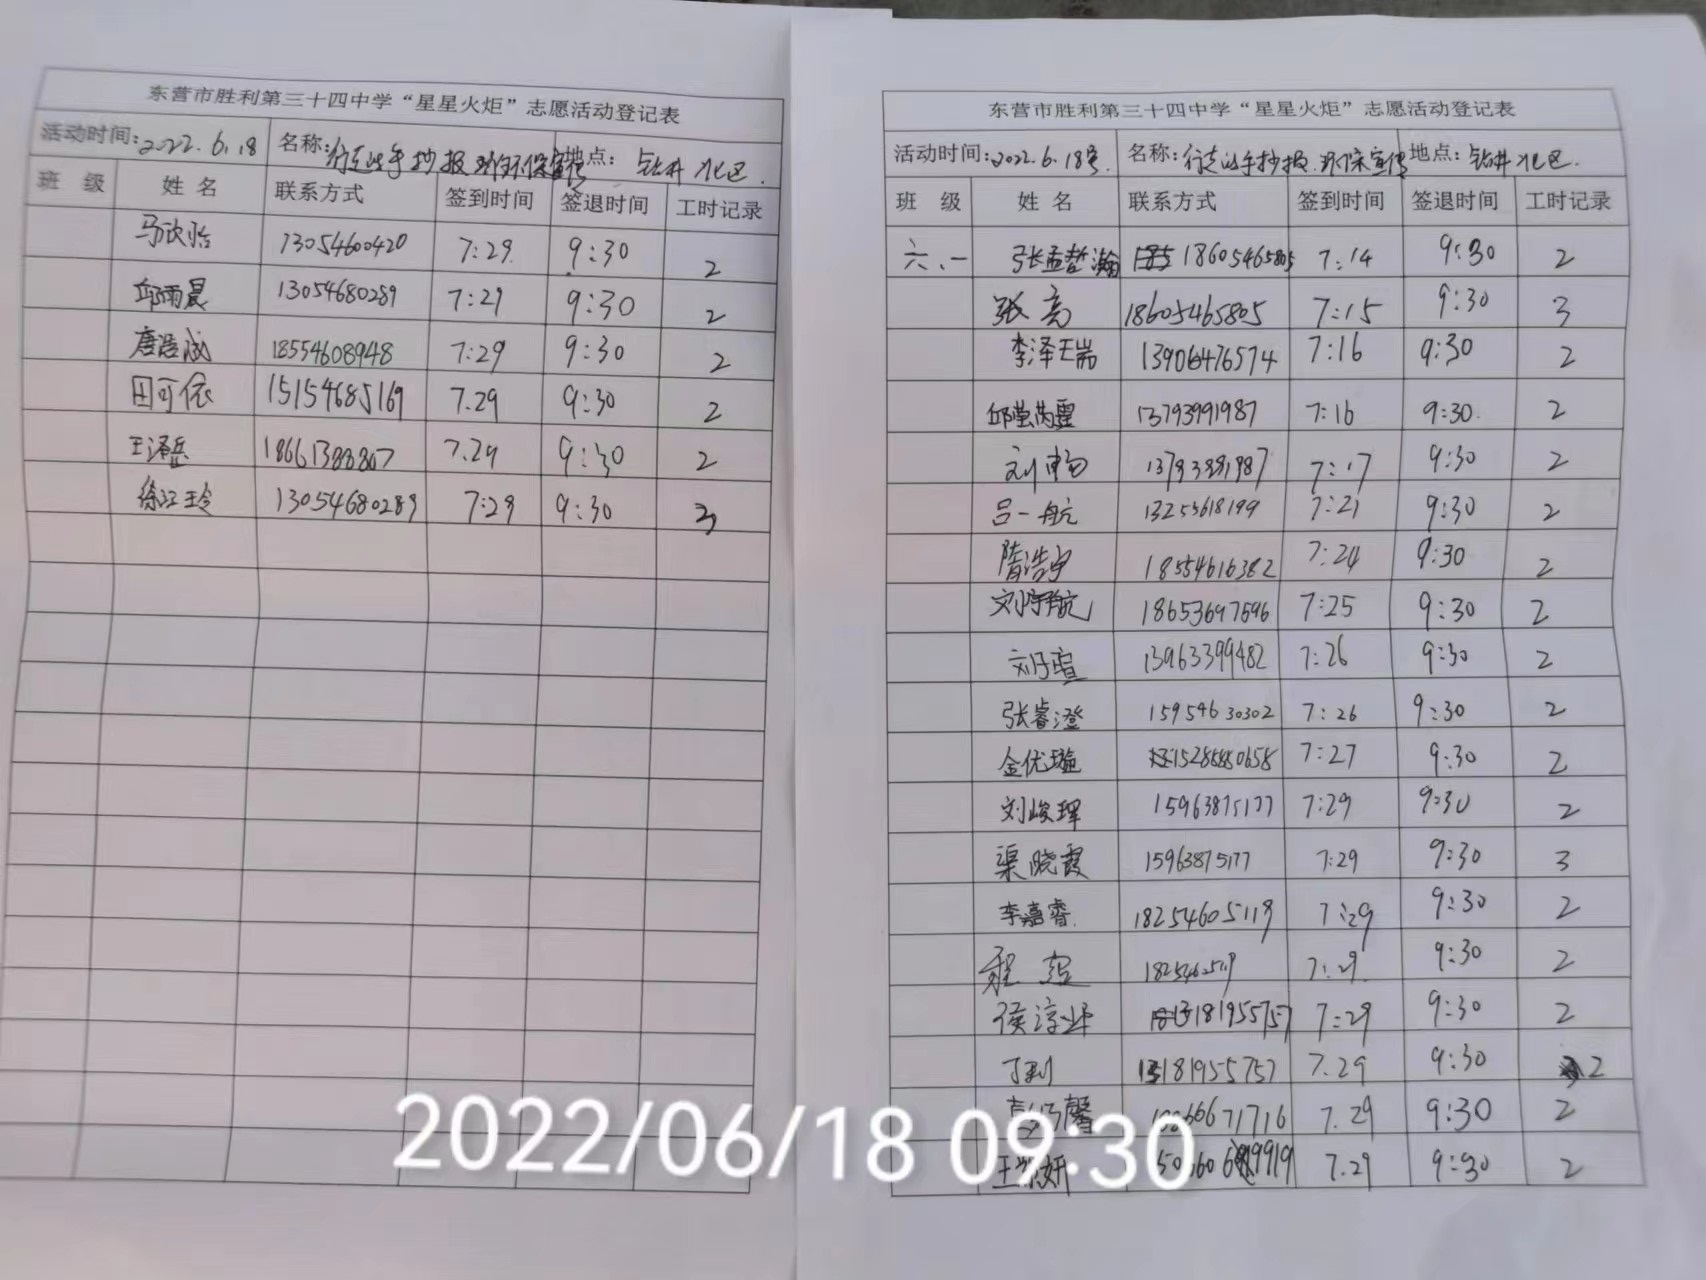 东营市胜利第三十四中学“星星火炬”志愿活动登记表
活动时间:2022.6.18 名称: 手抄报 环保宣传 地点: 钻井北区.
班 级 姓 名 联系方式 签到时间 签退时间 工时记录
马欣怡 13054600420 7:29 9:30 2
邱雨晨 13054680289 7:29 9:30 2
唐浩斌 18554608948 7:29 9:30 2
田可依 15154685169 7.29 9:30 2
王泽岳 18661388807 7.29 9:30 2
徐江玲 13054680289 7:29 9:30 3
东营市胜利第三十四中学“星星火炬”志愿活动登记表
活动时间:2022.6.18号. 名称: 手抄报.环保宣传 地点: 钻井北区.
班 级 姓 名 联系方式 签到时间 签退时间 工时记录
六.一 张孟哲瀚 18605465805 7:14 9:30 2
张亮 18605465805 7:15 9:30 3
李泽瑞 13906476574 7:16 9:30 2
邱 13793991987 7:16 9:30. 2
刘畅 13793991987 7:17 9:30 2
吕一航 13255618199 7:21 9:30 2
隋浩宇 18554616382 7:24 9:30 2
刘宇航 18653697596 7:25 9:30 2
刘子瑄 13963399482 7:26 9:30 2
张睿澄 15954630302 7:26 9:30 2
金优璇 7:27 9:30 2
刘峻珲 15963875177 7:29 9:30 2
渠晓霞 15963875177 7:29 9:30 3
李嘉睿. 18254605119 7:29 9:30 2
程 7:29. 9:30 2
侯淳 18195575 7:29 9:30 2
丁 13181955757 7.29 9:30 2
馨 7.29 9:30 2
王 妍 7.29 9:30 2
2022/06/18 09:30